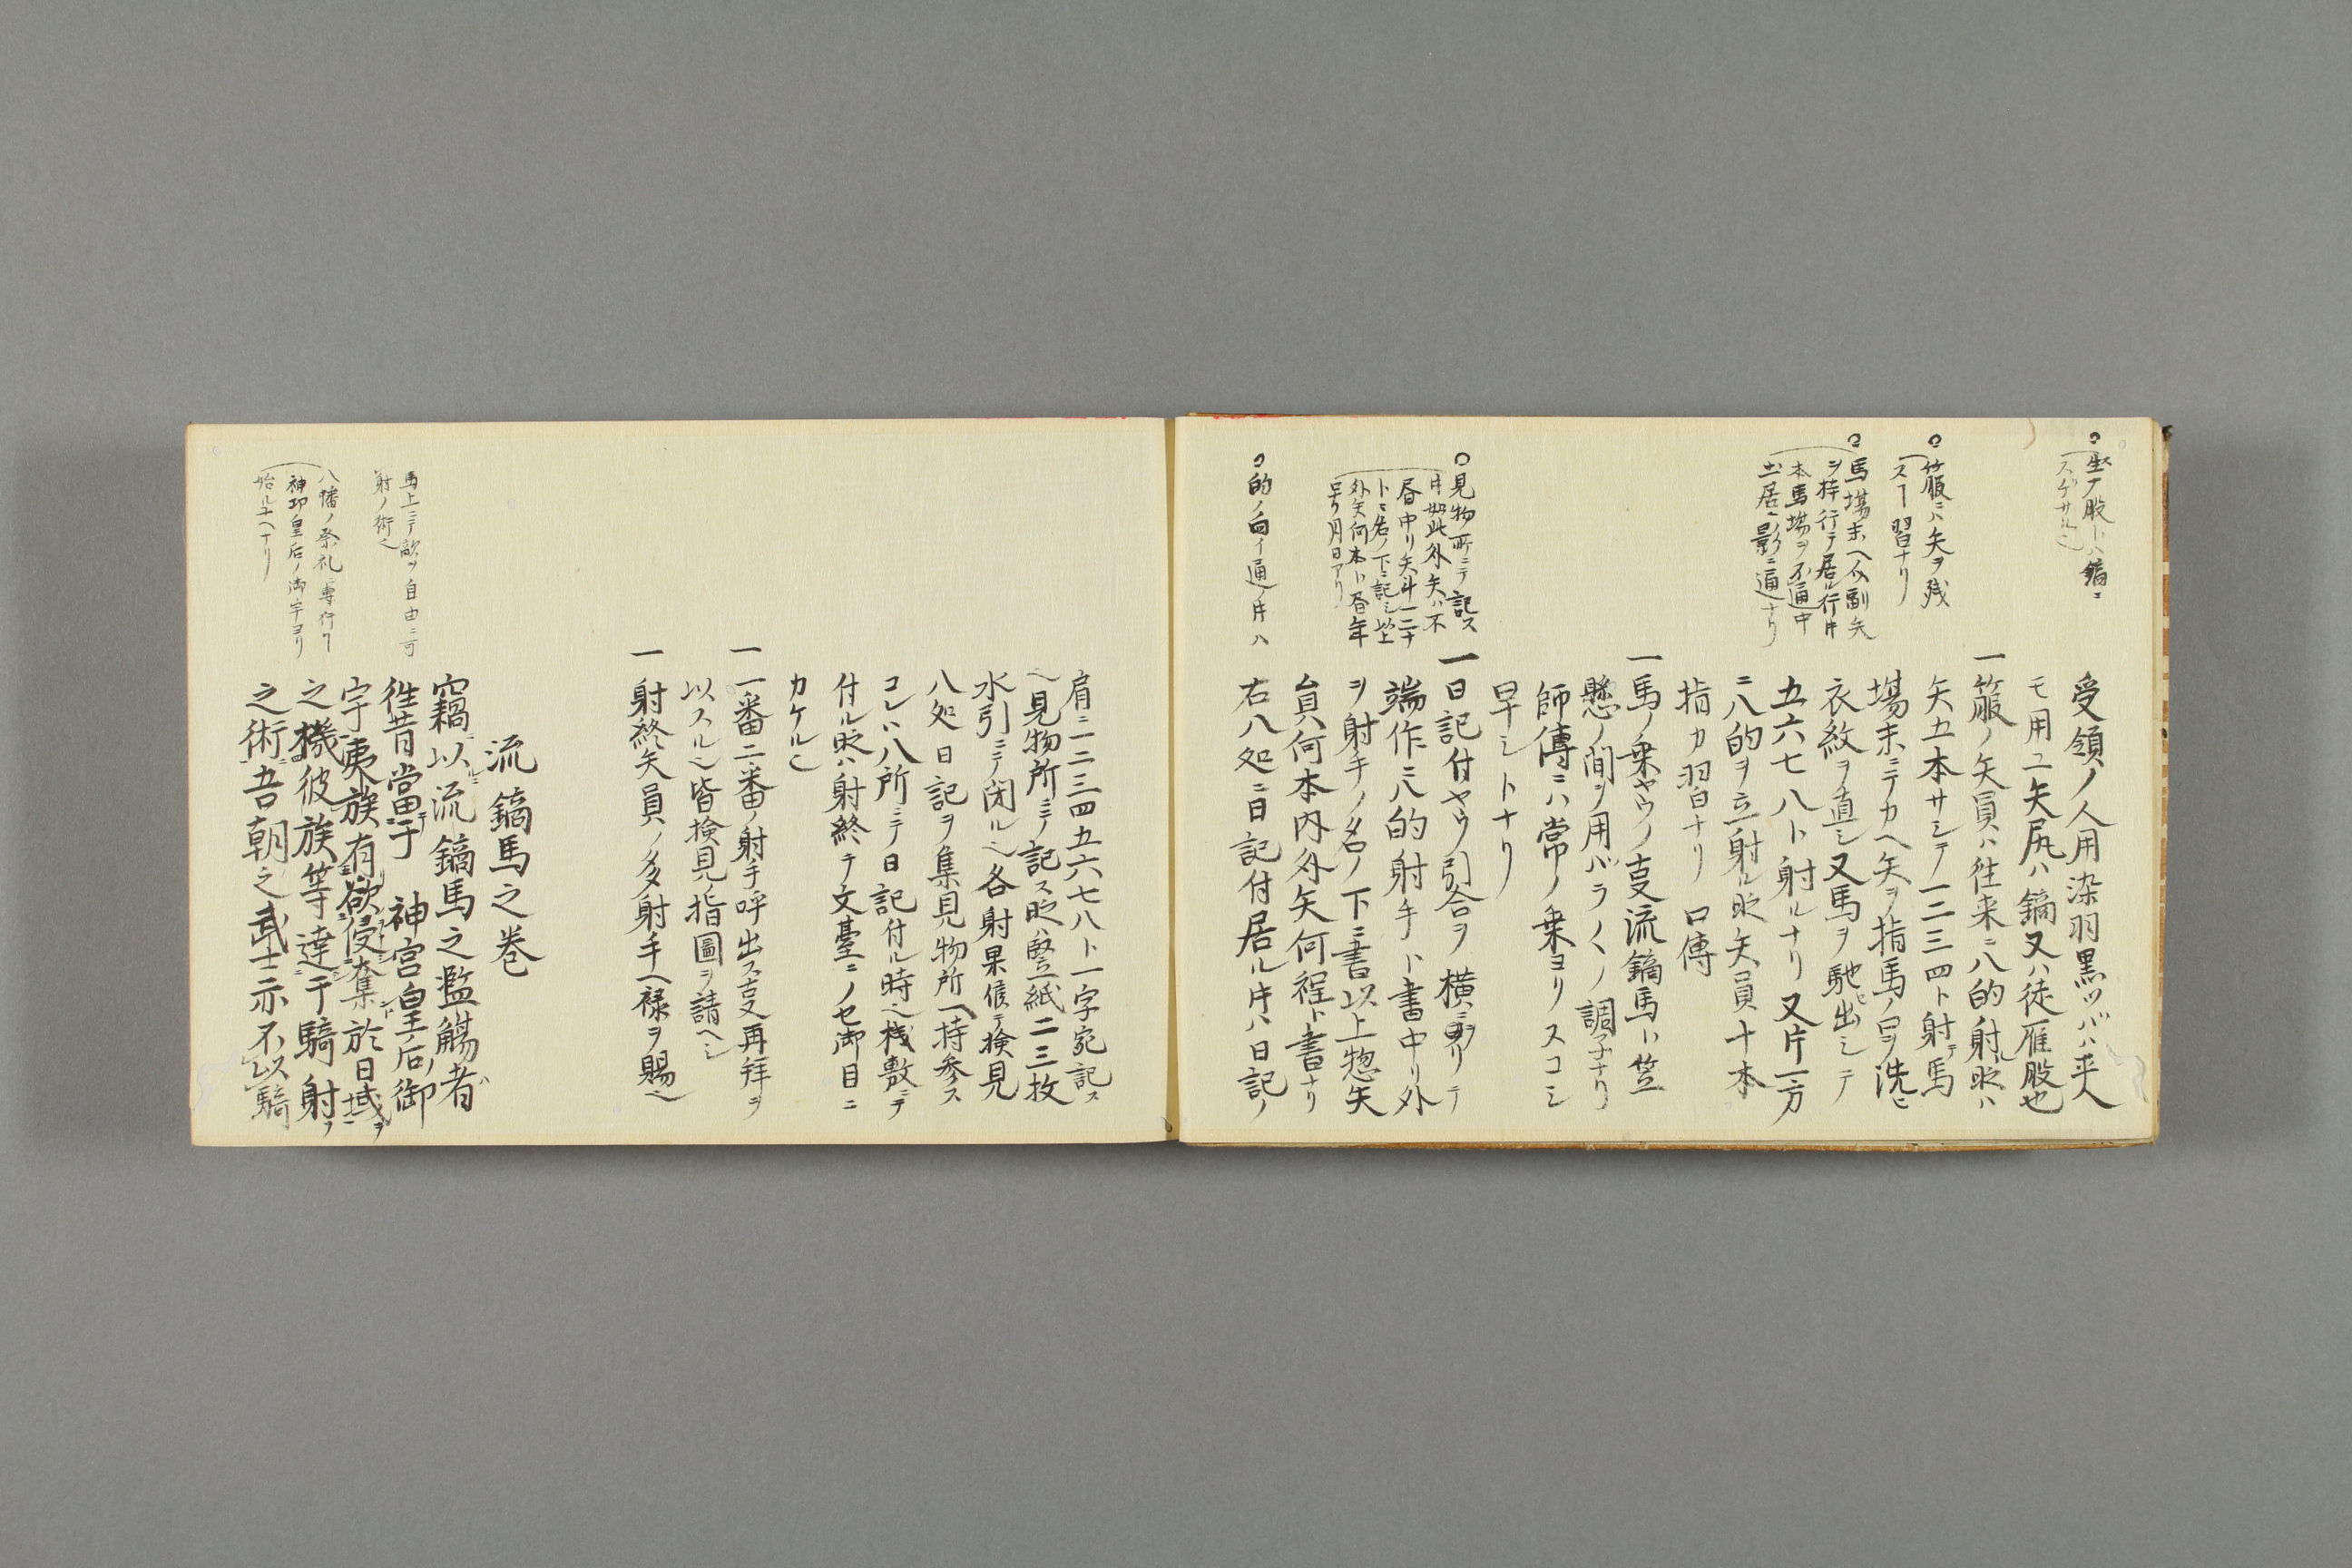 受領ノ人用染羽黒ツバハ平人
モ用ユ矢尻ハ鏑又ハ徒雁股也
一箙ノ矢員ハ往来ニ八的射ル时ハ
矢五本サシテ一二三四ト射テ馬
場末ニテカヘ矢ヲ指馬ノ口ヲ洗ヒ
衣紋ヲ直シ又馬ヲ馳出シテ
五六七八ト射ルナリ又片一方
ニ八的ヲ立射ル时矢員十本
指カ習ナリ 口傳
一馬ノ乗ヤウノ事流鏑馬ト笠
懸ノ間ヲ用バラ〱ノ調子ナリ
師傳ニハ常ノ乗ヨリスコシ
早シトナリ
一日記付ヤウ引合ヲ横ニ折リテ
端作ニ八的射手ト書中リ外
ヲ射手ノ名ノ下ニ書以上惣矢
員何本内外矢何程ト書ナリ
右八処ニ日記付居ル片ハ日記ノ
箙ニハ矢ヲ残
スヿ習ナリ
馬場末ヘ介副矢
ヲ持行テ居ル行片
本馬場ヲ不通中
土居ノ影ニ通ナリ
見物所ニテ記ス
片如此外矢ハ不
昏中リ矢斗一二十
トニ名ノ下ニ記シ以上
外矢何本ト昏年
号月日アリ
的ノ向イ通ノ片ハ
肩ニ一二三四五六七八ト一字宛記ス
ヘ見物所ニテノ記ス时ハ竪紙二三枚
水引ニテ閉ル也各射果候テ検見
八処日記ヲ集見物所ヘ持参ス
コレハ八所ニテ日記付ル時也桟敷ニテ
付ル时ハ射終テ文臺ニノセ御目ニ
カケル也
一一番二番ノ射手呼出ス事再拝ヲ
以スル也皆検見ノ指圖ヲ請ヘシ
一射終矢員ノ多射手ヘ禄ヲ賜也
流鏑馬之巻
竊以流鏑馬之濫觴者
徃昔當于 神宮皇后ノ御
宇夷族有欲侵奪於日域ヲ
之機彼族等達于騎射ヲ
之術吾朝之武士亦不以騎
馬上ニテ敵ヲ自由ニ可
射ノ術也
八幡ノ祭礼ニ専行フ
神功皇后ノ御宇ヨリ
始ル